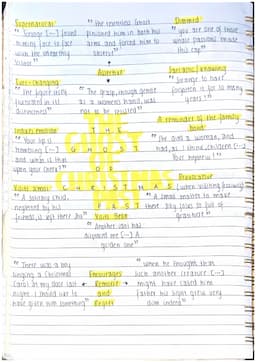 Supernatural
" Scrooge [...] found
coming face to face
with the unearthly
visitor "
" the relentless Ghost
pinioned him in both his
arms and forced him to
observe "
Doomed
" you are one of those
whose passions made
this cap "
Ever-changing
" the figure itself
fluctuated in its
distinctness "
Assertive
" The grasp, though gentle
as a woman's hand, was
not to be resisted "
Sarcastic / knowing
" Strange to have
forgotten it for so many
years ! "
" Your lip is
trembling [...]
and what is that
upon your cheek? "
THE
GHOST
OF
CHRISTMAS
PAST
A reminder of the family
bond
" She died a woman, and
had, as I think, children [...]
Your nephew ! "
" A solitary child,
neglected by his
friends, is left there still "
" A small matter to make
these silly folks so full of
gratitude "
" Another idol has
displaced me [...] A
golden one "
" There was a boy
singing a Christmas
Carol at my door last
night. I should like to
have given him something "
Encourages
Remorse
and
Regret
" when he thought that
such another creature [...]
might have called him
father his sight grew very
dim indeed "